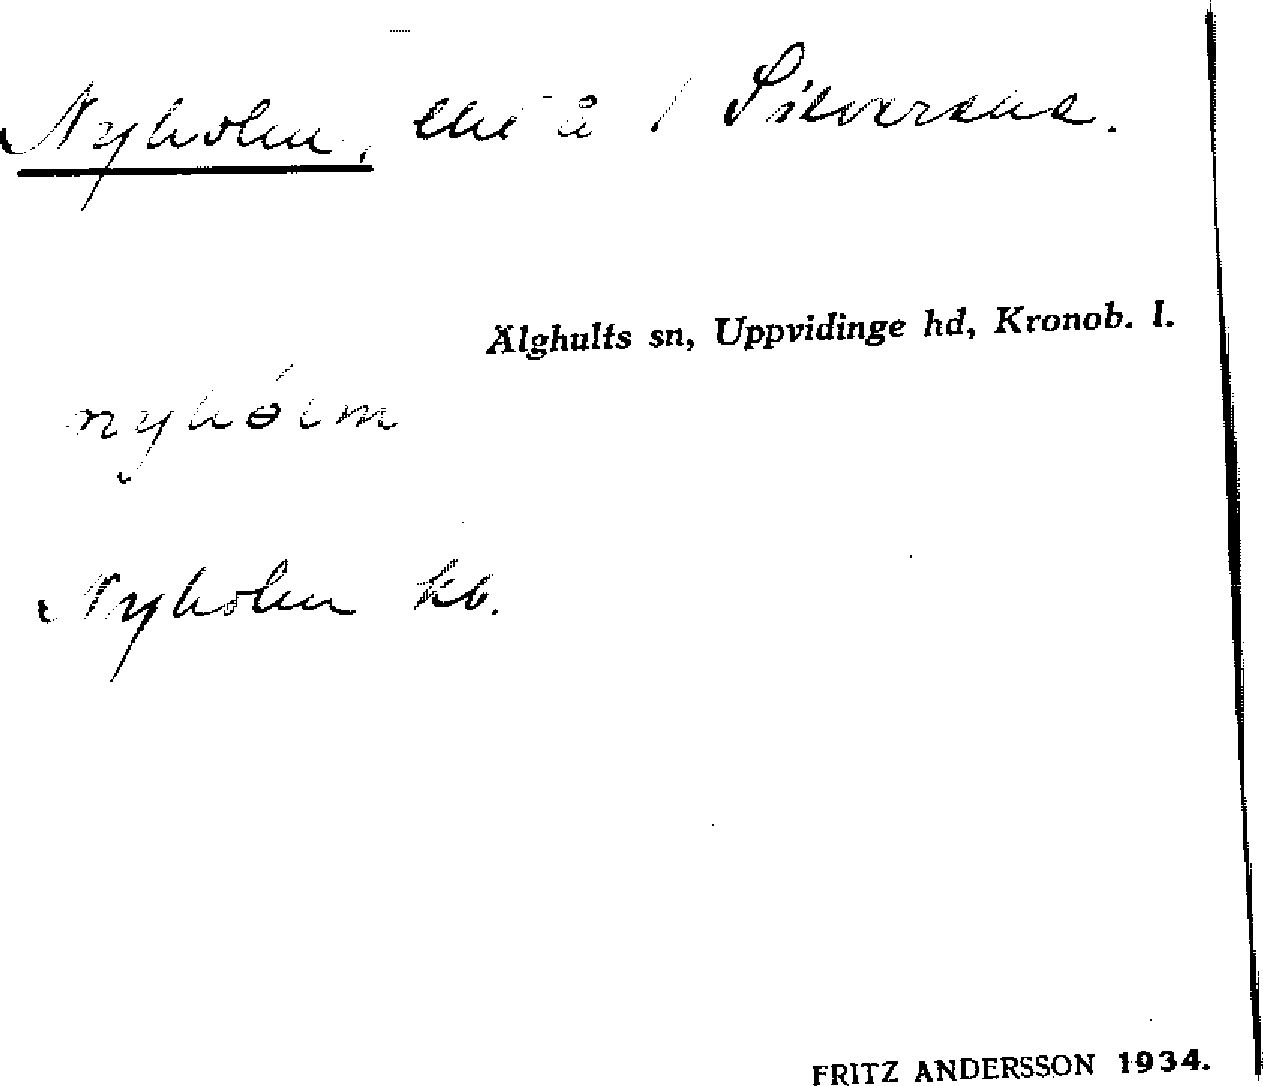 Nyholm, lht å 1 Silversrum.
Älghults sn, Uppvidinge hd, Kronob. l.
nyhólm
Nyholm kb.
FRITZ ANDERSSON 1934.